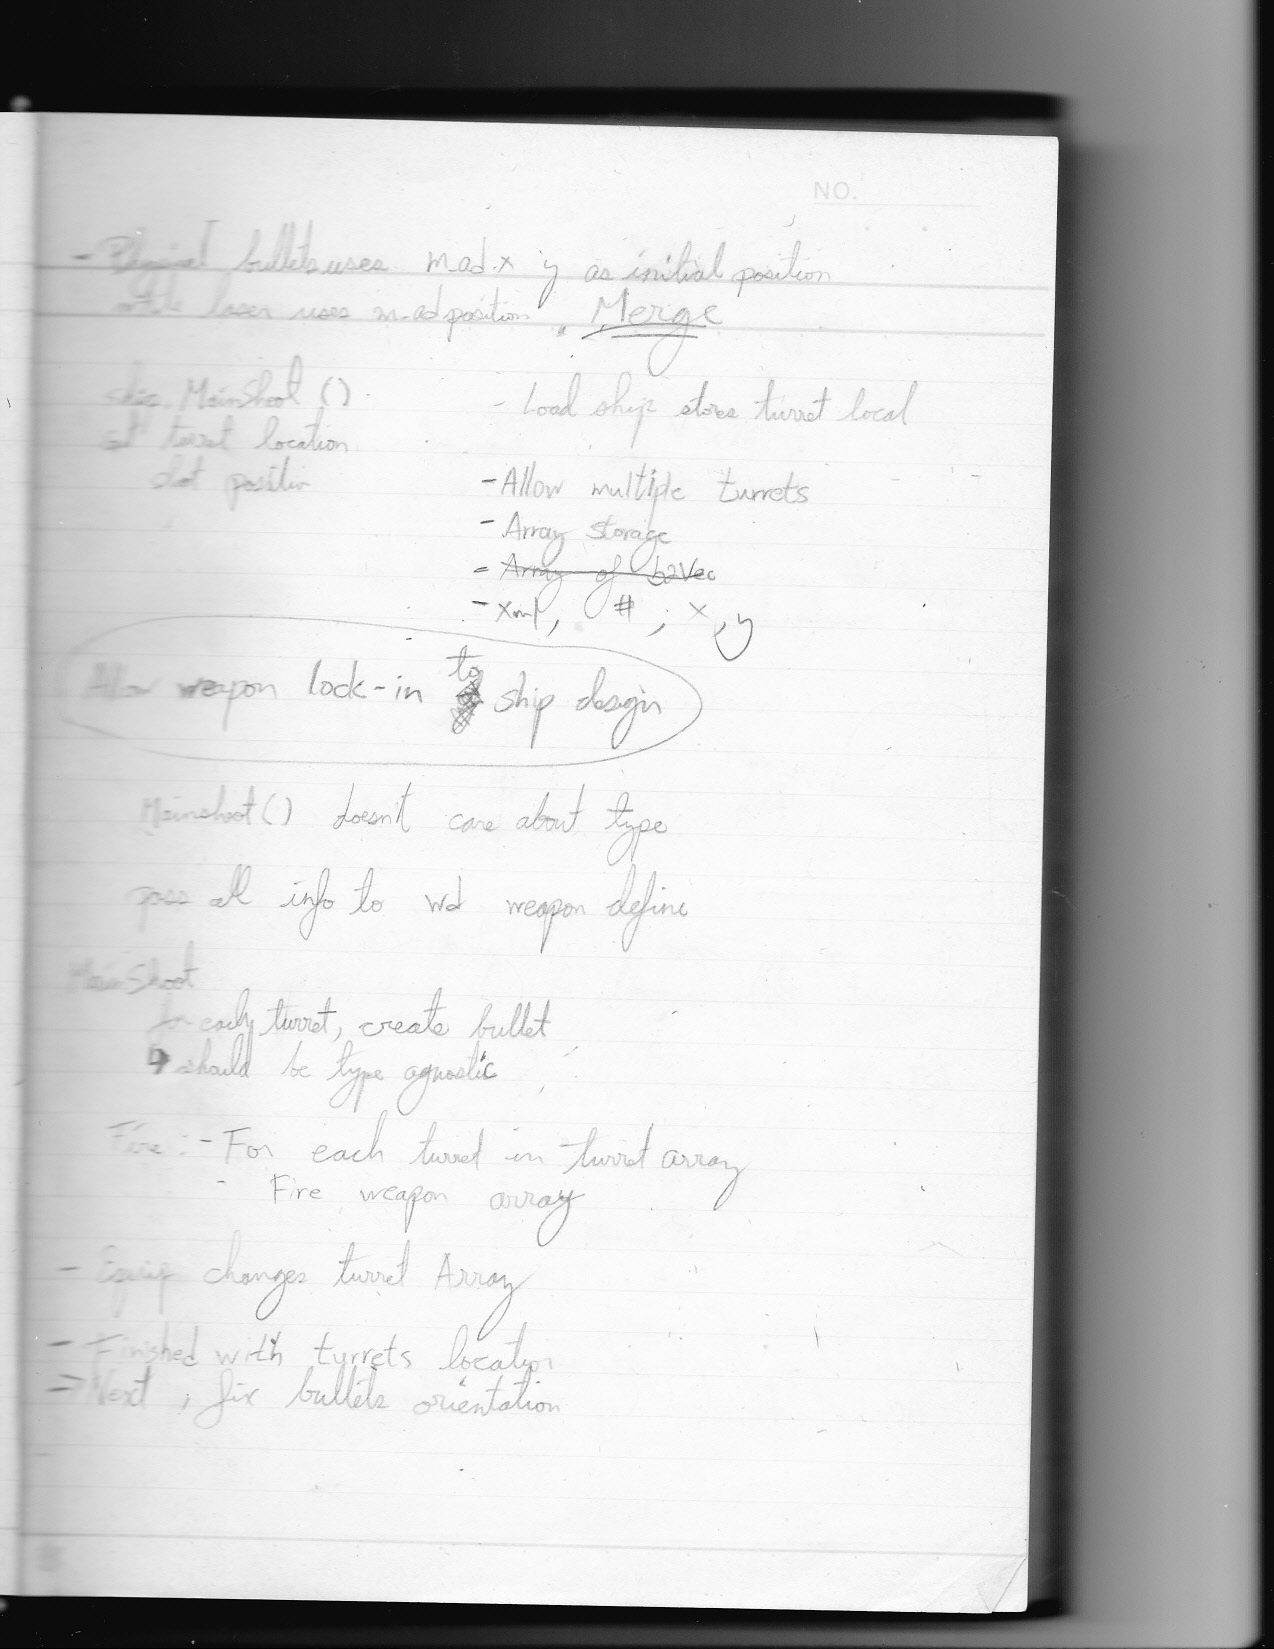 NO.
- Physical bullets uses m_ad.x y as initial position
while laser uses m_ad position. Merge
ship.MainShoot ()
turret location
slot position
- Load ship stores turret local
- Allow multiple turrets
- Array storage
- Array of b2Vec
- Xml, # ; x,y
Allow weapon lock-in to ship design
Mainshoot() doesn't care about type
pass all info to wd weapon define
MainShoot
for each turret, create bullet
↳ should be type agnostic
Fire: - For each turret in turret array
- Fire weapon array
- Equip changes turret Array
- Finished with turrets location
⇒ Next, fix bullets orientation